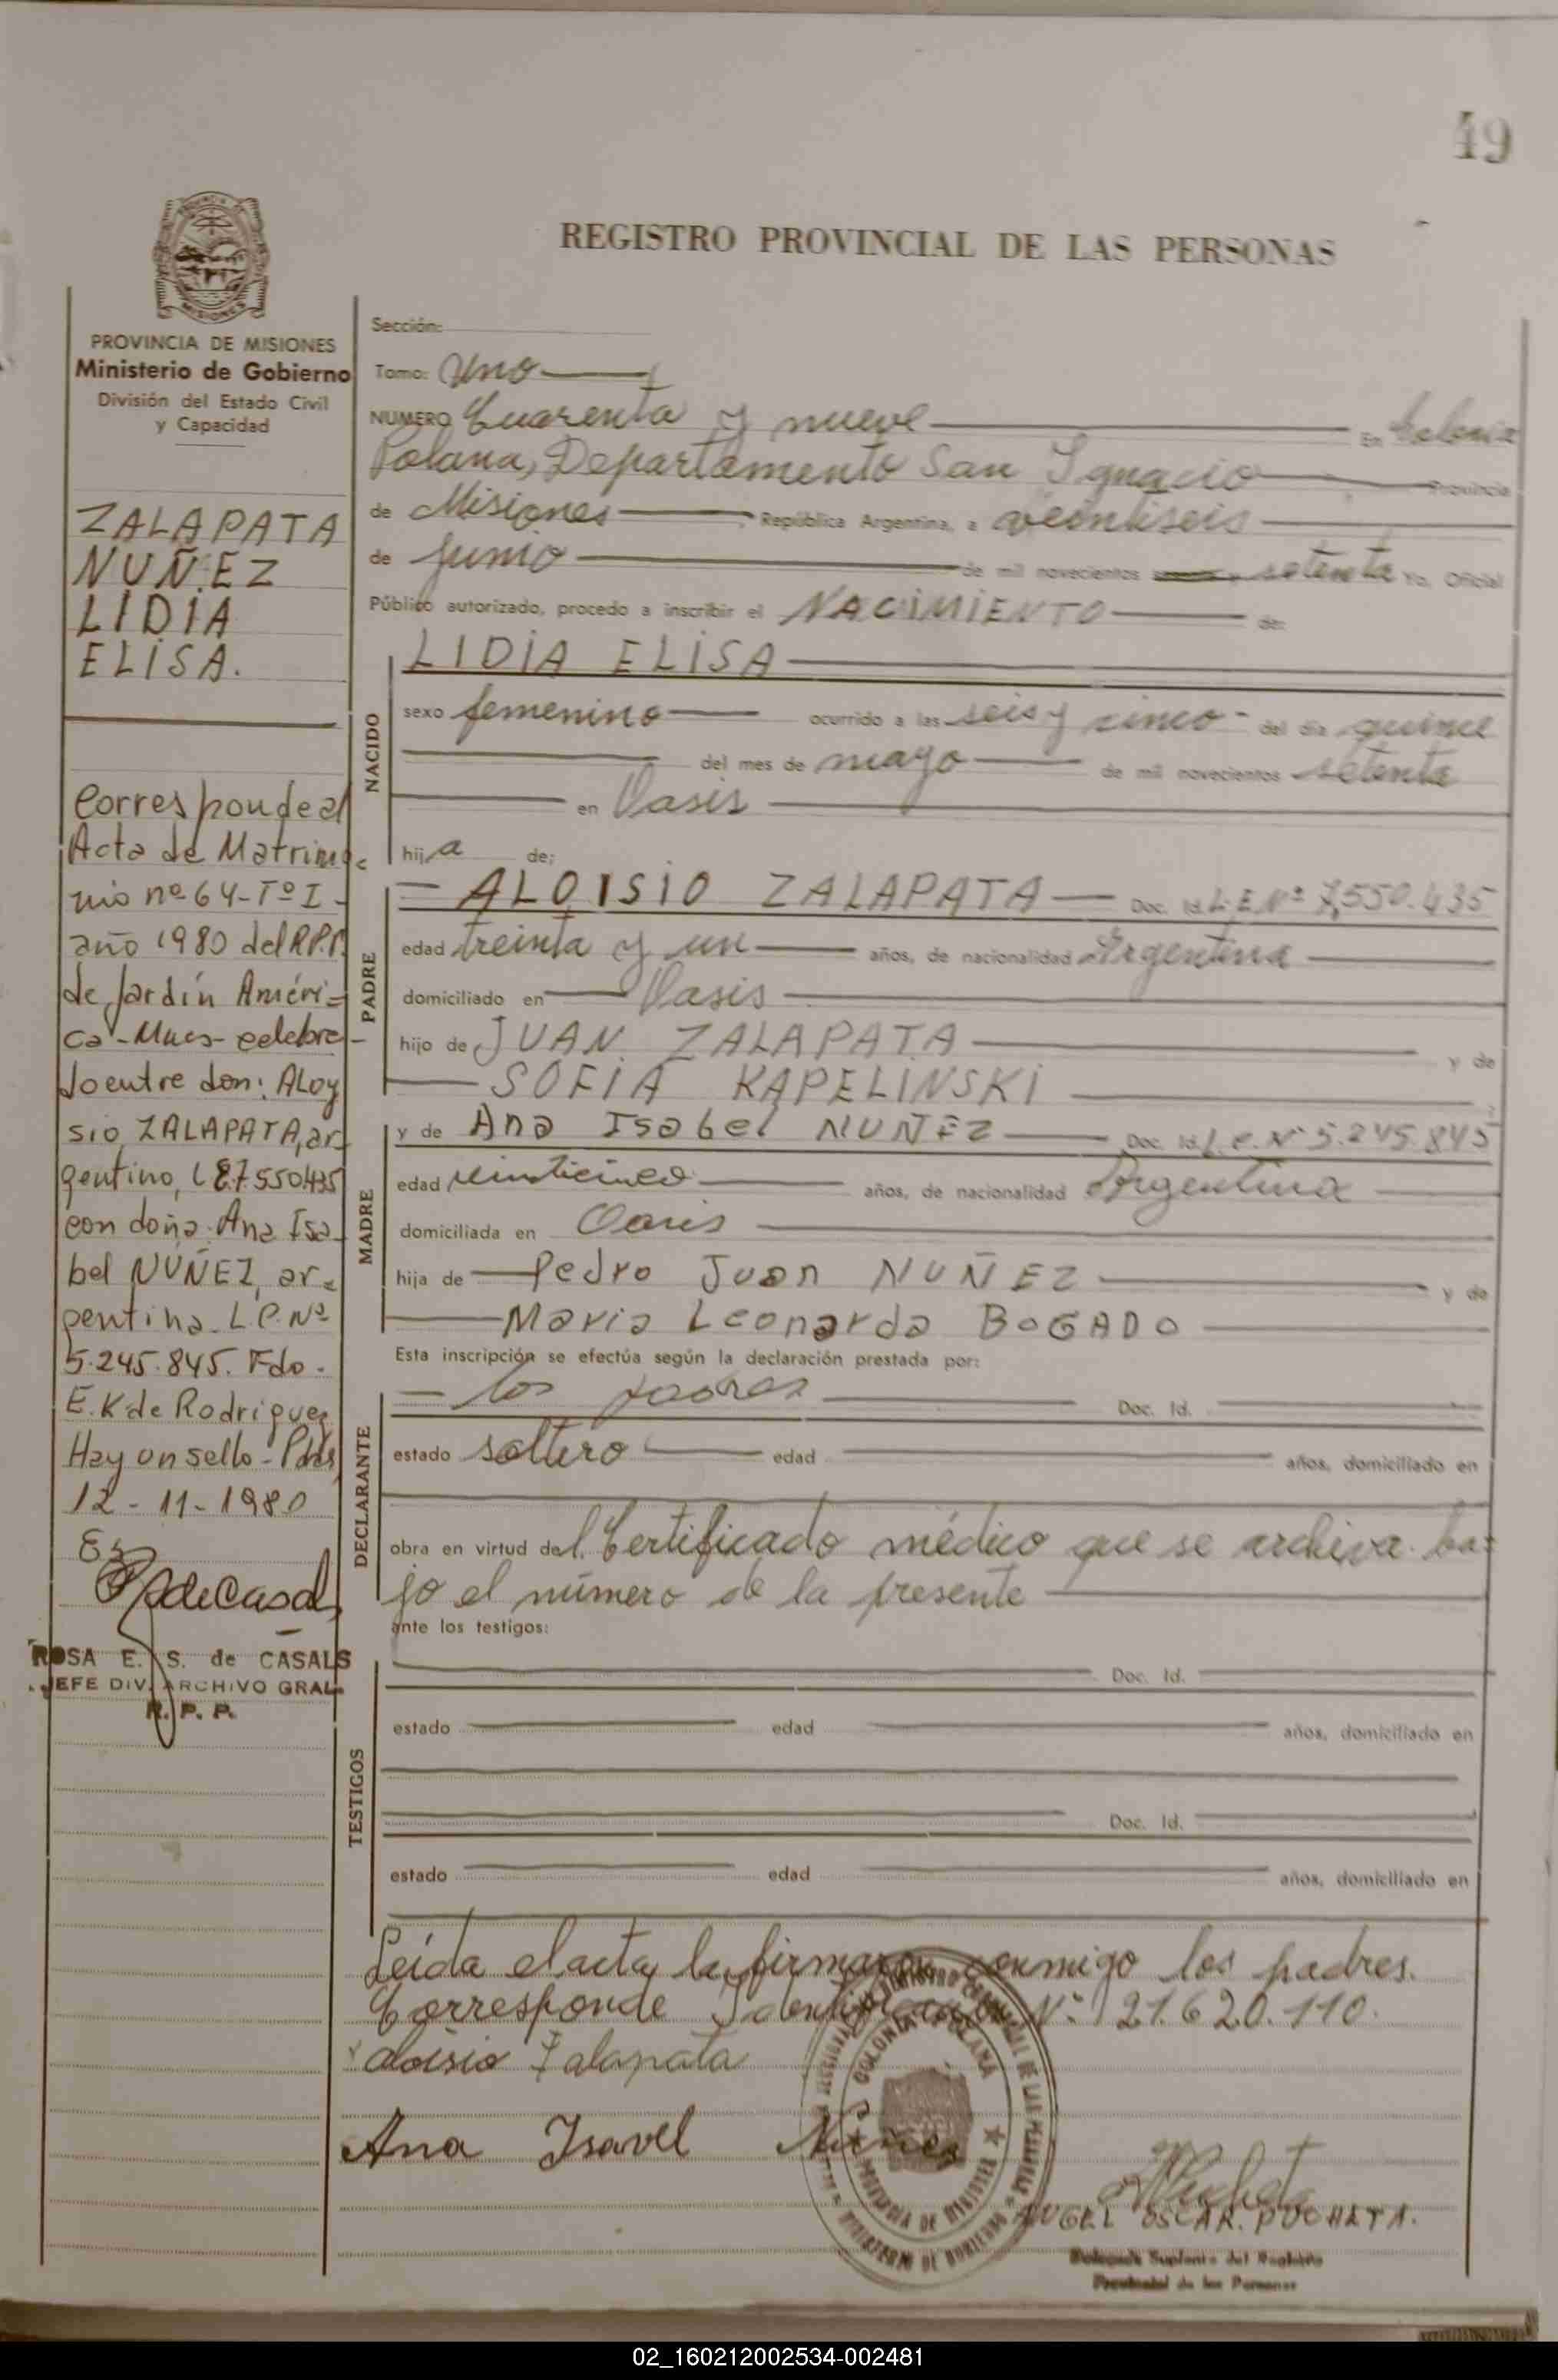 49
REGISTRO PROVINCIAL DE LAS PERSONAS
PROVINCIA DE MISIONES
Ministerio de Gobierno
División del Estado Civil
y Capacidad
ZALAPATA
NUÑEZ
LIDIA
ELISA.
Corresponde al
Acta de Matrimo
nio nº 64-Tº I-
año 1980 del R.P.P.
de Jardín Améri-
ca-Mnes-celebra-
do entre don: ALOY
SIO ZALAPATA, ar-
gentino, L.E.7.550.435
con doña: Ana Isa-
bel NUÑEZ, ar-
gentina. L.C. Nº
5.245.845. Fdo.
E.K. de Rodriguez
Hay un sello-Pdas
12-11-1980
ROSA E. S. de CASALS
JEFE DIV. ARCHIVO GRAL.
R. P. P.
Sección:
Tomo: Uno
NUMERO Cuarenta y nueve En Colonia
Polana, Departamento San Ignacio Provincia
de Misiones República Argentina, a veintiseis
de junio de mil novecientos setenta Yo, Oficial
Público autorizado, procedo a inscribir el NACIMIENTO de:
NACIDO
LIDIA ELISA
sexo femenino ocurrido a las seis y cinco del día quince
del mes de mayo de mil novecientos setenta
en Oasis
hija de:
PADRE
ALOISIO ZALAPATA Doc. Id. L.E.Nº 7,550.435
edad treinta y un años, de nacionalidad Argentina
domiciliado en Oasis
hijo de JUAN ZALAPATA y de
SOFIA KAPELINSKI
MADRE
y de Ana Isabel NUÑEZ Doc. Id. L.C. Nº 5.245.845
edad veinticinco años, de nacionalidad Argentina
domiciliada en Oasis
hija de Pedro Juan NUÑEZ y de
Maria Leonarda BOGADO
Esta inscripción se efectúa según la declaración prestada por:
DECLARANTE
los padres Doc. Id.
estado soltero edad años, domiciliado en
obra en virtud del Certificado médico que se archiva ba-
jo el número de la presente
ante los testigos:
TESTIGOS
Doc. Id.
estado edad años, domiciliado en
Doc. Id.
estado edad años, domiciliado en
Leída el acta, la firmaron conmigo los padres.
Corresponde Identificación Nº: 21.620.110.
Aloisio Zalapata
Ana Isavel Nuñes
COLONIA POLANA
PROVINCIA DE MISIONES
MINISTERIO DE GOBIERNO
ANGEL OSCAR. PUCHETA.
Delegado Suplente del Registro
Provincial de las Personas
02_160212002534-002481